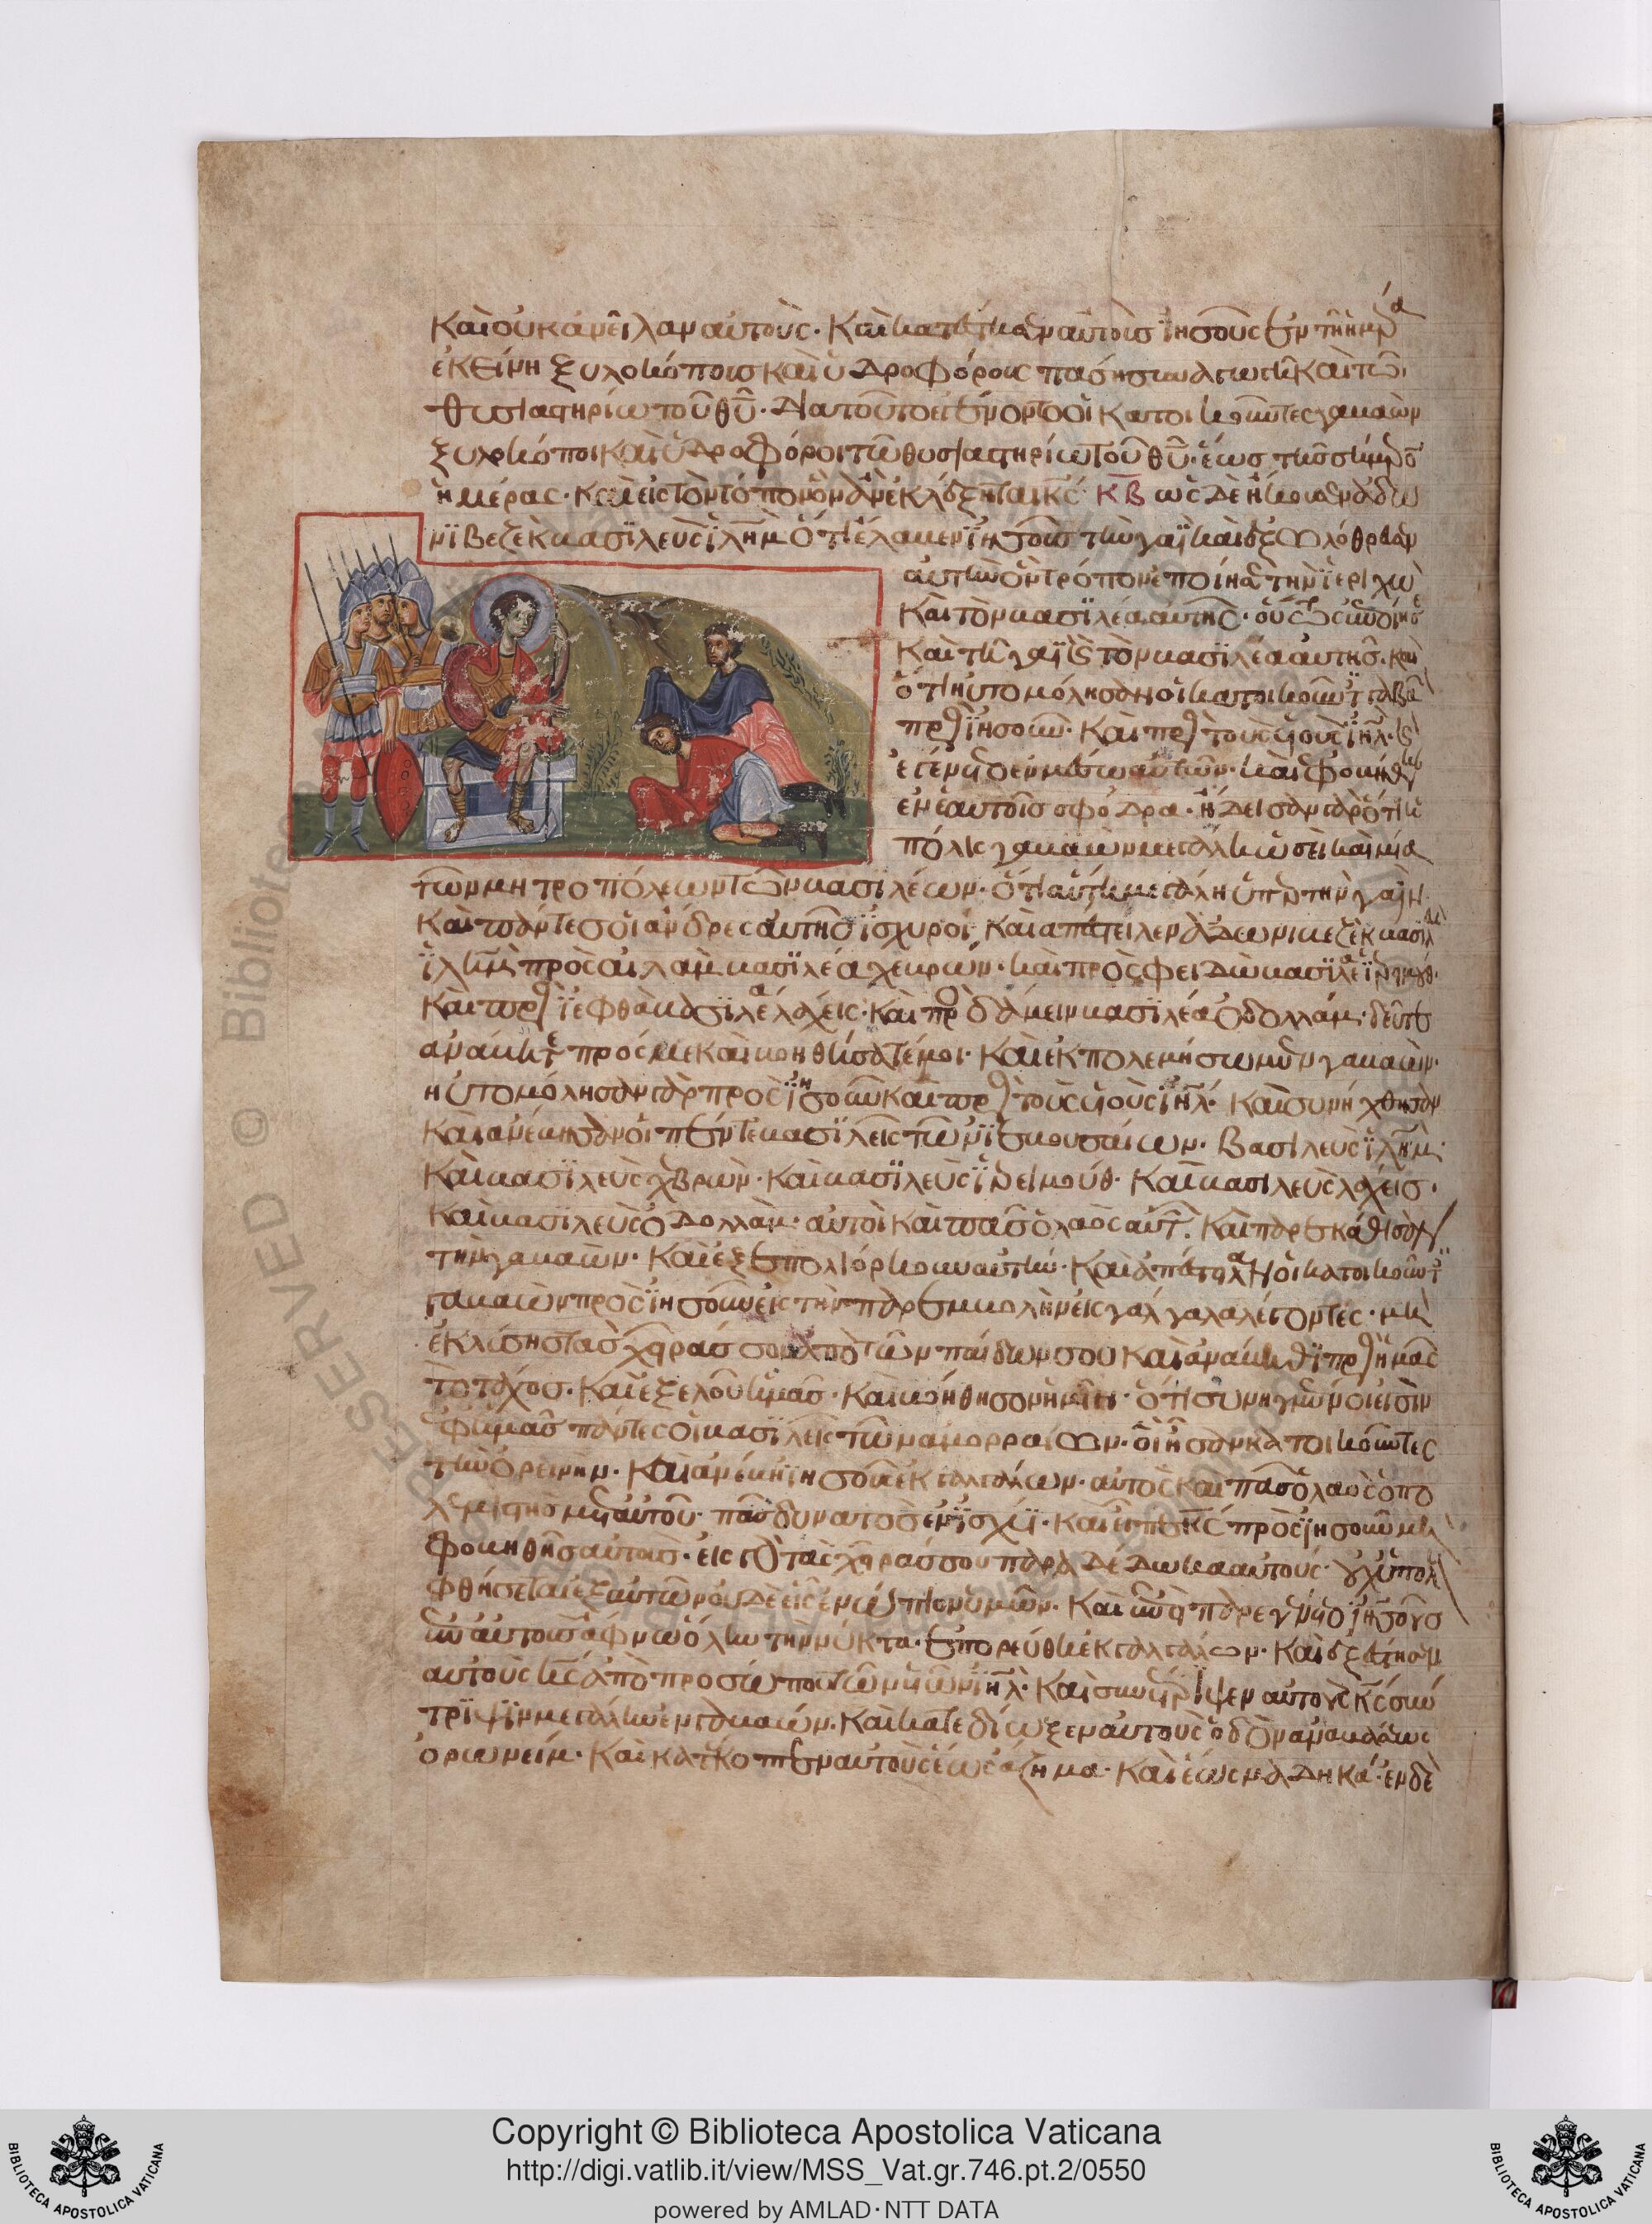 Καὶ οὐκ ἀνεῖλαν αὐτούς· Καὶ κατέστησεν αὐτοὺς ἰησοῦς ἐν τῆ ἡμέρα
ἐκείνη ξυλοκόπους καὶ ὑδροφόρους πάση συναγωγῆ καὶ τῶ
θυσιαστηρίω τοῦ θῦ· Διὰ τοῦτο ἐγένοντο οἱ κατοικοῦντες γαβαὼν
ξυλοκόποι καὶ ὑδροφόροι τῶ θυσιαστηρίω τοῦ θῦ· ἕως τῆς σήμερον
ἡμέρας· Καὶ εἰς τὸν τόπον ὃν ἂν ἐκλέξηται κς· ΚΒ ὡς δὲ ἤκουσεν ἀδω
νϊβεζὲκ βασϊλεὺς ϊλημ ὅτι ἔλαβεν ϊησοῦς τὴν γαῒ καὶ ἐξωλόθρευσεν
αὐτὴν ὃν τρόπον ἐποίησε τὴν ϊεριχὼ
Καὶ τὸν βασϊλέα αὐτῆς· οὕτως ἐποίησε
Καὶ τὴν γαῒ καὶ τὸν βασιλέα αὐτῆς· καὶ
ὅτι ηὐτομόλησαν οἱ κατοικοῦντες γαβαὼν
πρὸς ϊησοῦν· Καὶ πρὸς τοὺς υἱοὺς ϊηλ· καὶ
ἐγένοντο ἐν μέσω αὐτῶν· καὶ ἐφοβήθησαν
ἐν ἑαυτοῖς σφόδρα· ἤδεισαν γὰρ ὅτι
πόλις γαβαὼν μεγάλη ὡσεὶ καὶ μία
τῶν μητροπόλεων τῶν βασιλέων· ὅτι αὐτὴ μεγάλη ὑπὲρ τὴν γαὶ·
Καὶ πάντες οἱ ἄνδρες αὐτῆς ϊσχυροί· Καὶ ἀπέστειλεν ἀδωνιβεζὲκ βασιλεὺς
ϊλημ πρὸς αἰλὰμ βασϊλέα χεβρών· καὶ πρὸς φειδὼν βασϊλέα
Καὶ πρὸς ϊεφθὰ βασϊλέα λαχείς· Καὶ πρὸς δαβεὶν βασϊλέα ὀδολλάμ· δεῦτε
ἀνάβητε πρός με καὶ βοηθήσατέ μοι· Καὶ ἐκπολεμήσωμεν γαβαών·
ηὐτομόλησαν γὰρ πρὸς ϊησοῦν καὶ πρὸς τοὺς υἱοὺς ϊηλ· Καὶ συνήχθησαν
Καὶ ἀνέβησαν οἱ πέντε βασϊλεῖς τῶν ϊεβουσαίων· Βασιλεὺς ϊλημ·
Καὶ βασϊλεὺς χεβρών· Καὶ βασϊλεὺς ϊδειμούθ· Καὶ βασιλεὺς λαχείς·
Καὶ βασϊλεὺς ὀδολλάμ· αὐτοὶ καὶ πᾶς ὁ λαὸς αὐτῶν· Καὶ περιεκάθισαν
τὴν γαβαών· Καὶ ἐξεπολιόρκουν αὐτήν· Καὶ ἀπέστειλαν οἱ κατοικοῦντες
γαβαὼν πρὸς ϊησοῦν εἰς τὴν παρεμβολὴν εἰς γάλγαλα λέγοντες· μὴ
ἐκλύσης τὰς χεῖράς σου ἀπὸ τῶν παίδων σου καὶ ἀνάβηθϊ πρὸς ἡμᾶς
τὸ τάχος· Καὶ ἐξελοῦ ἡμᾶς· Καὶ βοήθησον ἡμῖν· ὅτι συνηγμένοι εἰσὶν
ἐφ' ἡμᾶς πάντες οἱ βασϊλεῖς τῶν ἀμορραίων· οἱ ἦσαν κατοικοῦντες
τὴν ὀρεινήν· Καὶ ἀνέβη ϊησοῦς ἐκ γαλγάλων· αὐτὸς καὶ πᾶς ὁ λαὸς ὁ πο
λεμιστὴς μετ' αὐτοῦ· πᾶς δυνατὸς ἐν ϊσχύϊ· Καὶ εἶπε κς πρὸς ϊησοῦν μὴ
φοβηθῆς αὐτούς· εἰς γὰρ τὰς χεῖράς σου παραδέδωκα αὐτούς· οὐχ ὑπολει
φθήσεται ἐξ αὐτῶν οὐδὲ εἷς ἐνώπιον ὑμῶν· Καὶ παρεγένετο ϊησοῦς
ἐπ' αὐτοὺς ἄφνω ὅλην τὴν νύκτα· ἐπορεύθη ἐκ γαλγάλων· Καὶ ἐξέστησεν
αὐτοὺς κς ἀπὸ προσώπου τῶν υἱῶν ϊηλ· Καὶ συνέτριψεν αὐτοὺς κς συν
τρίψιν μεγάλην ἐν γαβαών· Καὶ κατεδίωξεν αὐτοὺς ὁδὸν ἀναβάσεως
ὀρωνείν· Καὶ κατέκοπτεν αὐτοὺς ἕως ἀζηκα· Καὶ ἕως μαδηκά· ἐν δὲ
RESERVED © Biblioteca Apostolica Vaticana
Copyright © Biblioteca Apostolica Vaticana
http://digi.vatlib.it/view/MSS_Vat.gr.746.pt.2/0550
powered by AMLAD·NTT DATA
BIBLIOTECA APOSTOLICA VATICANA
BIBLIOTECA APOSTOLICA VATICANA